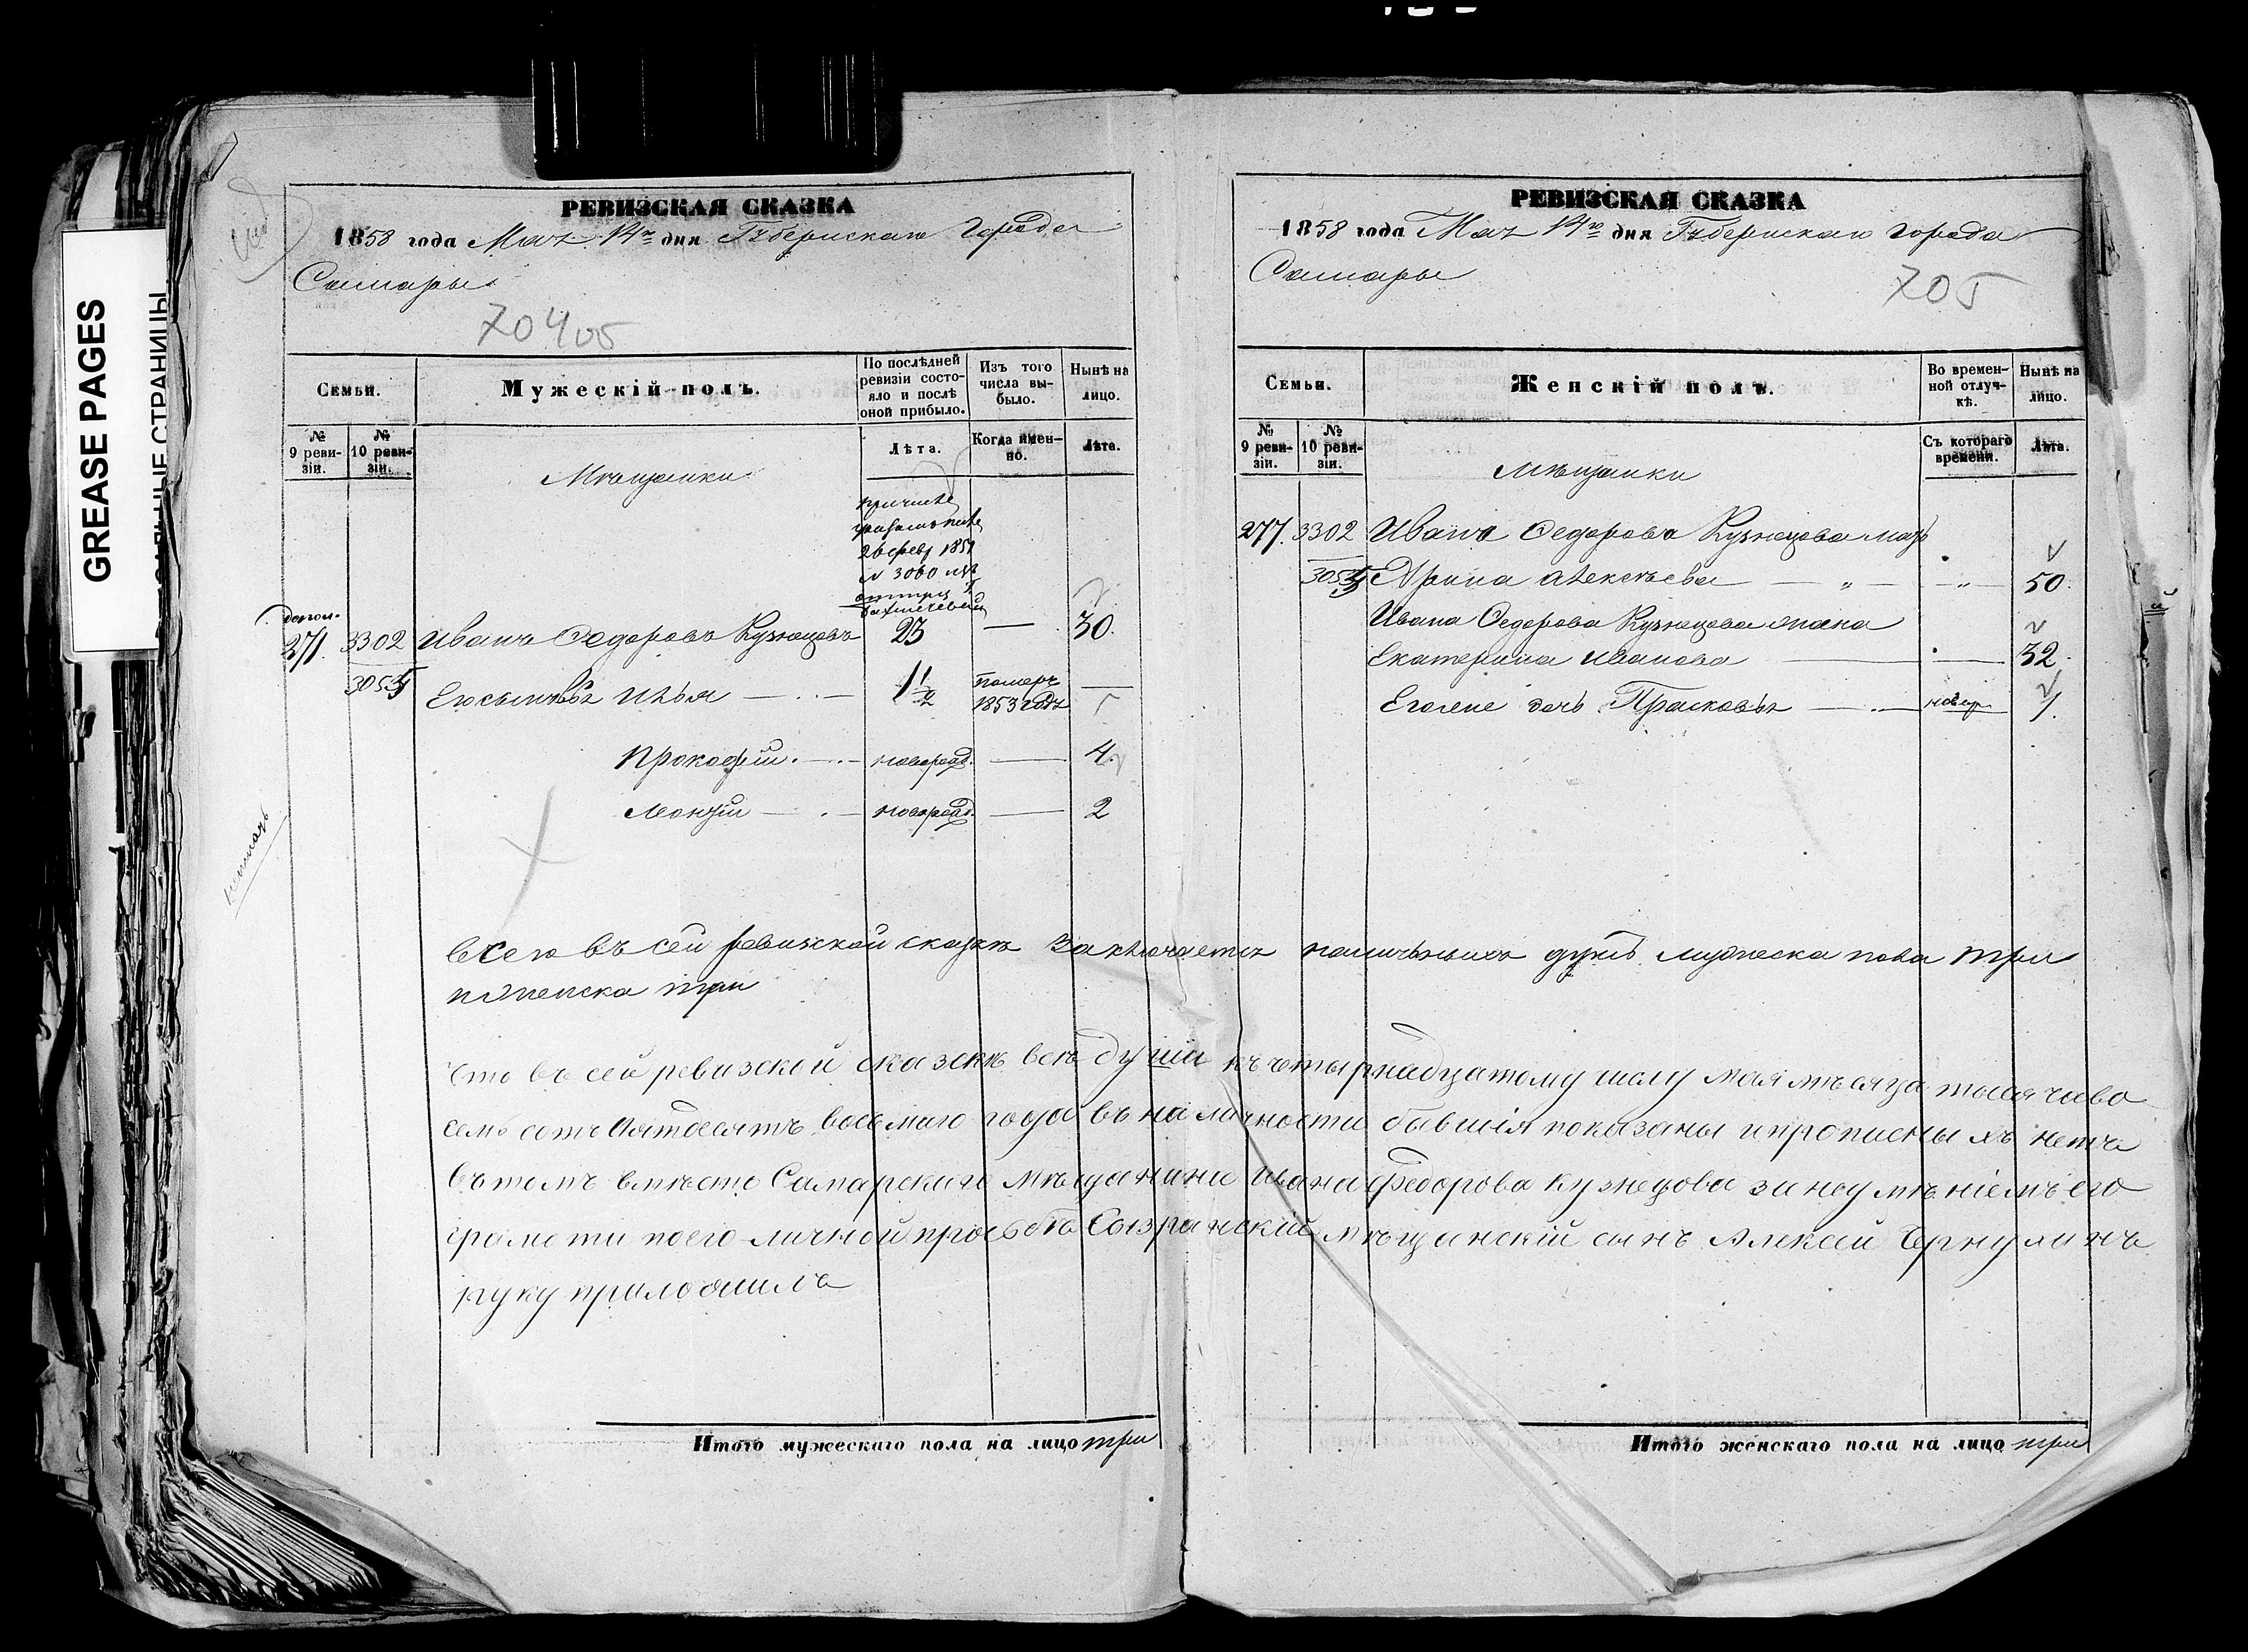 GREASE PAGES
РЕВИЗСКАЯ СКАЗКА
1858 года Мая 14го дня Губернскаго Города
Самары
704об
Семьи.
Мужескій полъ.
По послѣдней ревизіи состояло и послѣ оной прибыло.
Изъ того числа выбыло.
Нынѣ на лицо.
№ 9 ревизіи.
№ 10 ревизіи.
Мѣщанки
Лѣта.
Когда именно.
Лѣта.
26 февр 1851
№ 3060
допол.
271. 3302 Иванъ Федоровъ Кузнецовъ 23 — 30.
Его сыновья Илья 1 1/2 померъ 1853 года —
Прокофій новорожд. — 4.
новорожд. — 2
всего въ сей ревизской сказкѣ заключается наличныхъ душъ мужеска пола три
и женска три
Что въ сей ревизской сказкѣ всѣ души къ четырнадцатому числу мая мѣсяца тысяча во
семь сотъ пятдесятъ восьмаго года въ наличности бывшія показаны и прописныхъ нетъ
въ томъ вместо Самарскаго мѣщанина Ивана Федорова Кузнецова за неумѣніемъ его
грамоти по его личной прозьбѣ Сызранскій мѣщанскій сынъ Алексей Чернулинъ
руку приложилъ
Итого мужескаго пола на лицо три
РЕВИЗСКАЯ СКАЗКА
1858 года Мая 14го дня Губернскаго города
Самары
705
Семьи.
Женскій полъ.
Во временной отлучкѣ.
Нынѣ на лицо.
№ 9 ревизіи.
№ 10 ревизіи.
Мѣщанки
Съ котораго времени.
Лѣта.
277. 3302 Ивана Федорова Кузнецова мать
Арина Алексѣева — „ — — „ — 50.
Ивана Федорова Кузнецова жена
Екатерина Иванова — — 32.
Его дочь Прасковья новор 1.
Итого женскаго пола на лицо три